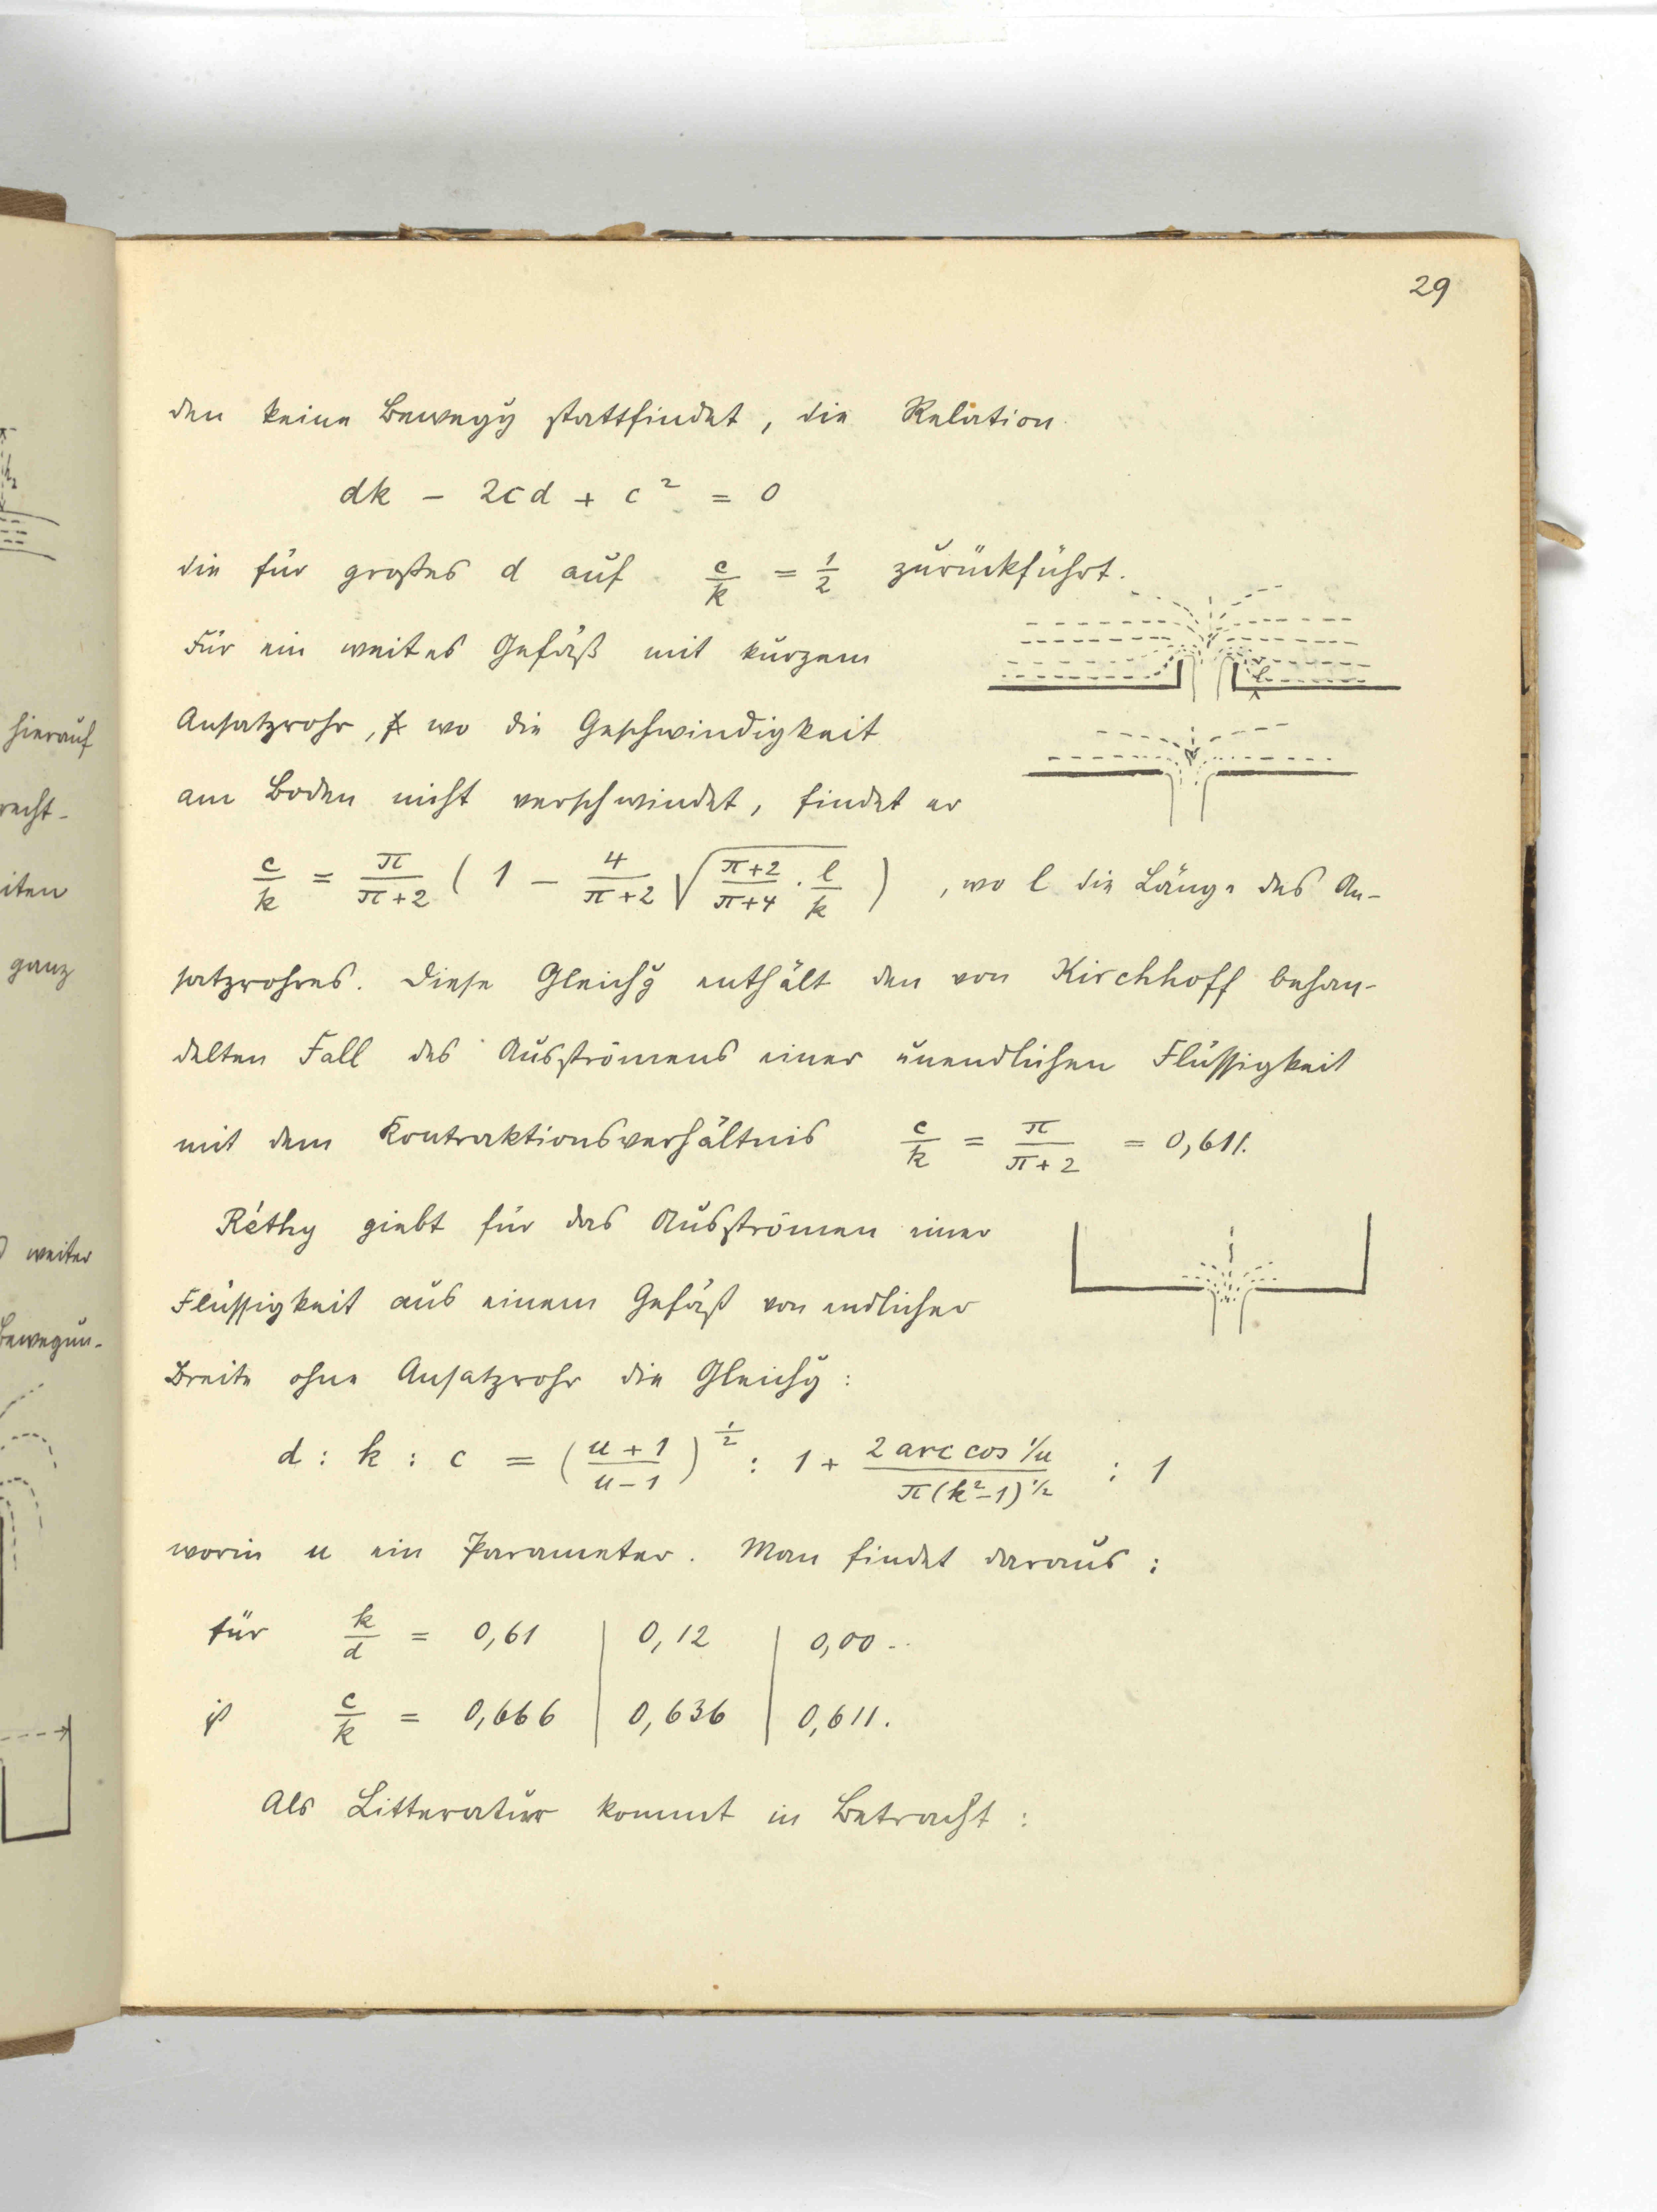 29
den keine Bewegg stattfindet, die Relation
dk - 2cd + c² = 0
die für großes d auf c/k = 1/2 zurückführt.
Für ein weites Gefäß mit kurzem
Ansatzrohr, wo die Geschwindigkeit
am Boden nicht verschwindet, findet er
c/k = π/(π+2) ( 1 - 4/(π+2) √((π+2)/(π+4) · l/k) ) , wo l die Länge des An-
satzrohres. Diese Gleichg enthält den von Kirchhoff behan-
delten Fall des Ausströmens einer unendlichen Flüssigkeit
mit dem Kontraktionsverhältnis c/k = π/(π+2) = 0,611.
Réthy giebt für das Ausströmen einer
Flüssigkeit aus einem Gefäß von endlicher
Breite ohne Ansatzrohr die Gleichg:
d : k : c = ((u+1)/(u-1))^(1/2) : 1 + (2 arc cos 1/u)/(π(k²-1)^(1/2)) : 1
worin u ein Parameter. Man findet daraus:
für k/d = 0,61 | 0,12 | 0,00..
ist c/k = 0,666 | 0,636 | 0,611.
Als Litteratur kommt in Betracht:
hierauf
recht-
iten
ganz
weiter
Bewegun-
l